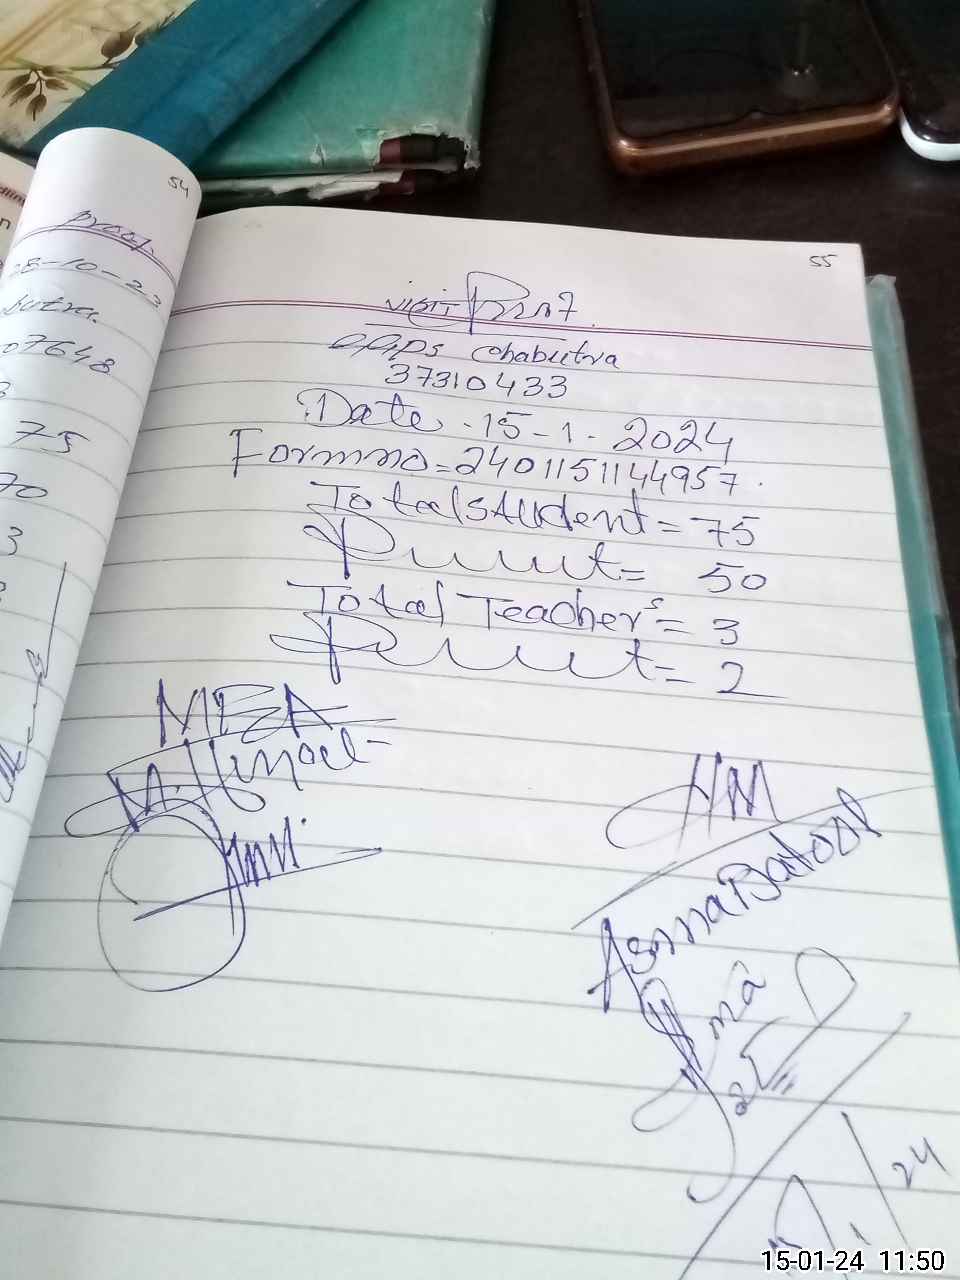 54
Proof.
28-10-23
butra.
07648
3
75
70
3
55
visit Proof.
GGPS Chabutra
37310433
Date . 15-1-2024
Formno=2401151144957.
Total Student = 75
Present = 50
Total Teacher's = 3
Present = 2
MEA
HM
Asma Batool
24
15-01-24 11:50